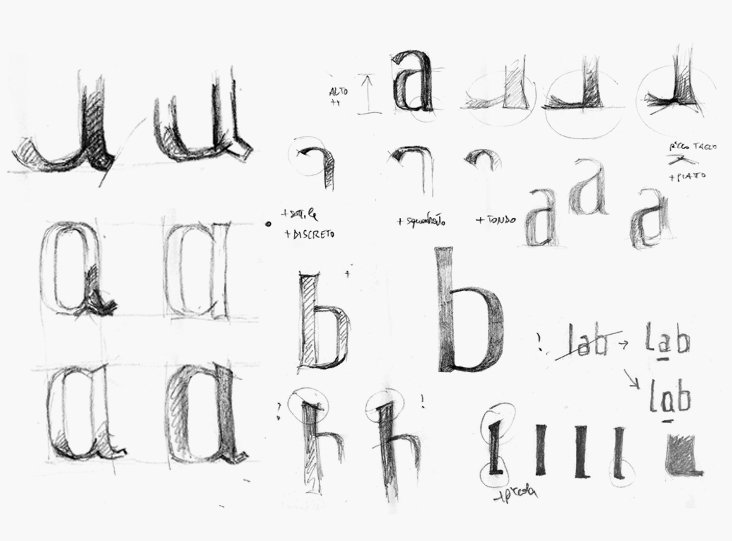 ALTO
++
a
a
a
a
PICCOLO TAGLIO
+ PIATTO
+ SOTTILE
+ DISCRETO
+ squadrato
+ TONDO
a
a
a
a
b
+
b
! lab → lab
lab
? h
h !
l l l l
+ piccola